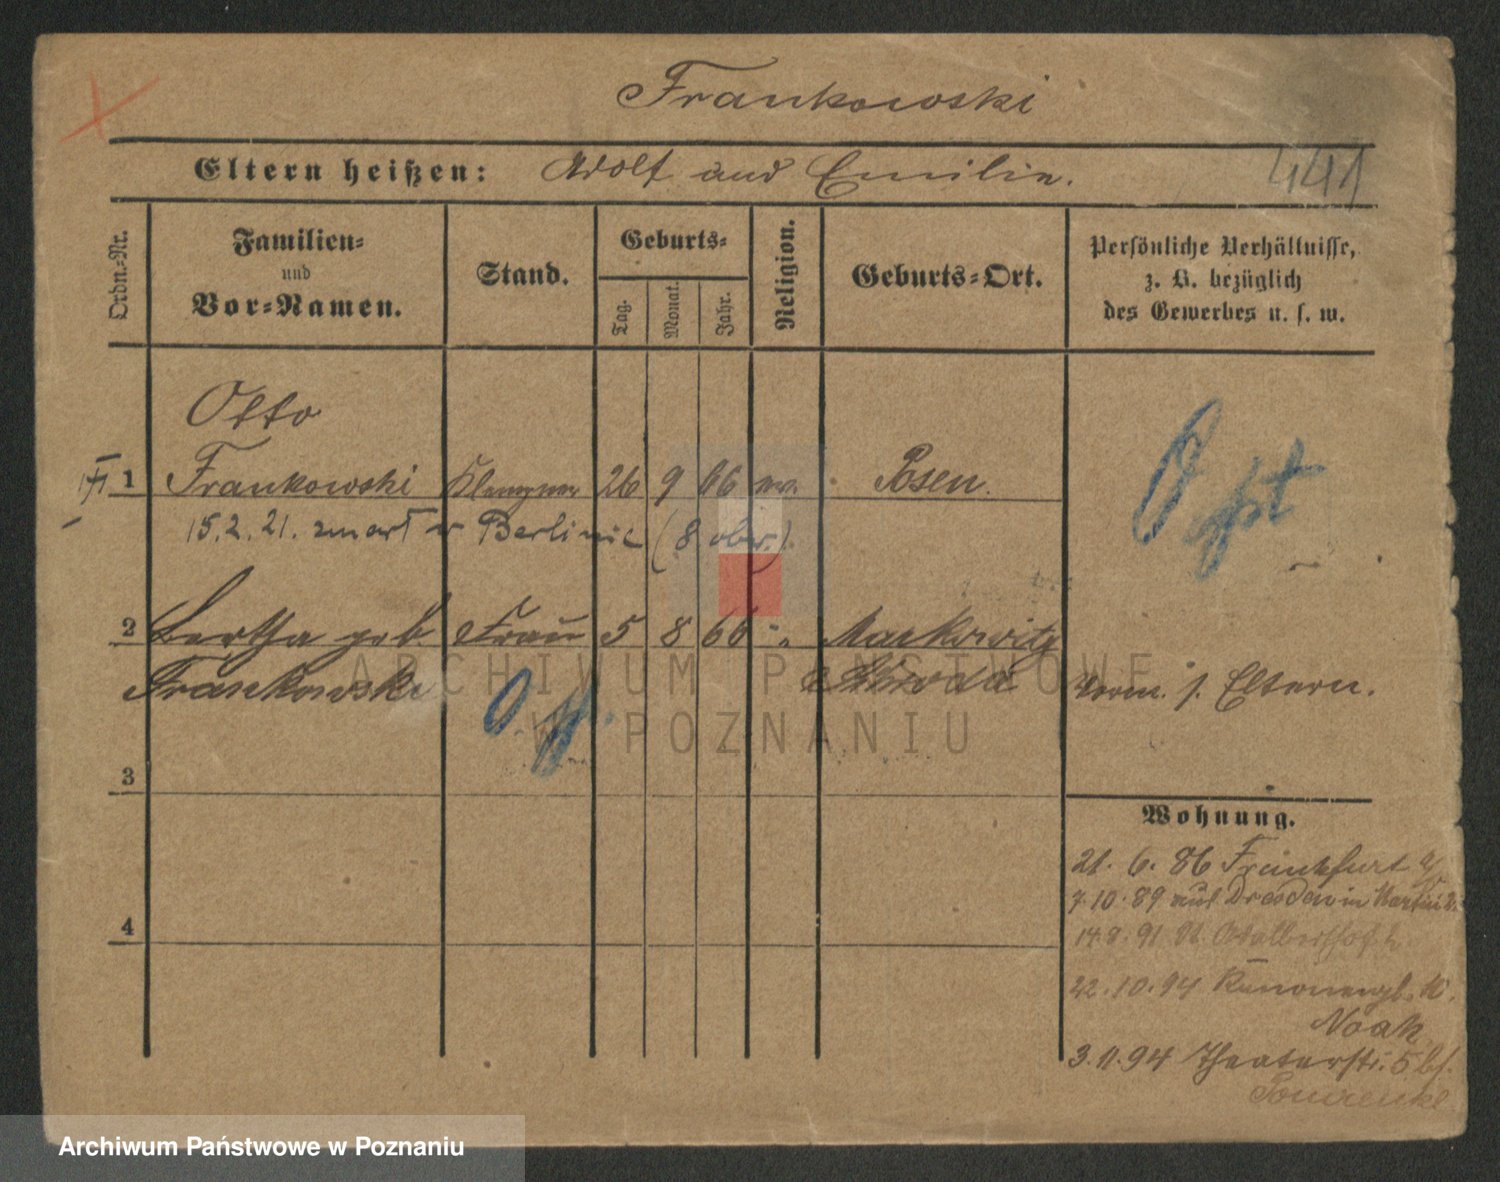 Frankowski
Eltern heißen: Adolf und Emilie.
441
Ordn.-Nr.
Familien-
und
Vor-Namen.
Stand.
Geburts-
Tag.
Monat.
Jahr.
Religion.
Geburts-Ort.
Persönliche Verhältnisse,
z. B. bezüglich
des Gewerbes u. s. w.
Otto
1 Frankowski Klempner 26 9 66 ev. Posen.
15.2.21. zmarł w Berlinie (8 ober.)
2 Bertha geb Frau 5 8 66 " Markowitz
Frankowski Schroda Verm. s. Eltern.
3
Wohnung.
21.6.86 Frankfurt a/
7.10.89 aus Dresden in
4
14.9.91
22.10.94 Kanonenpl. 10.
Noak
3.11.94 Theaterstr. 5 bf.
ARCHIWUM PAŃSTWOWE
W POZNANIU
Archiwum Państwowe w Poznaniu